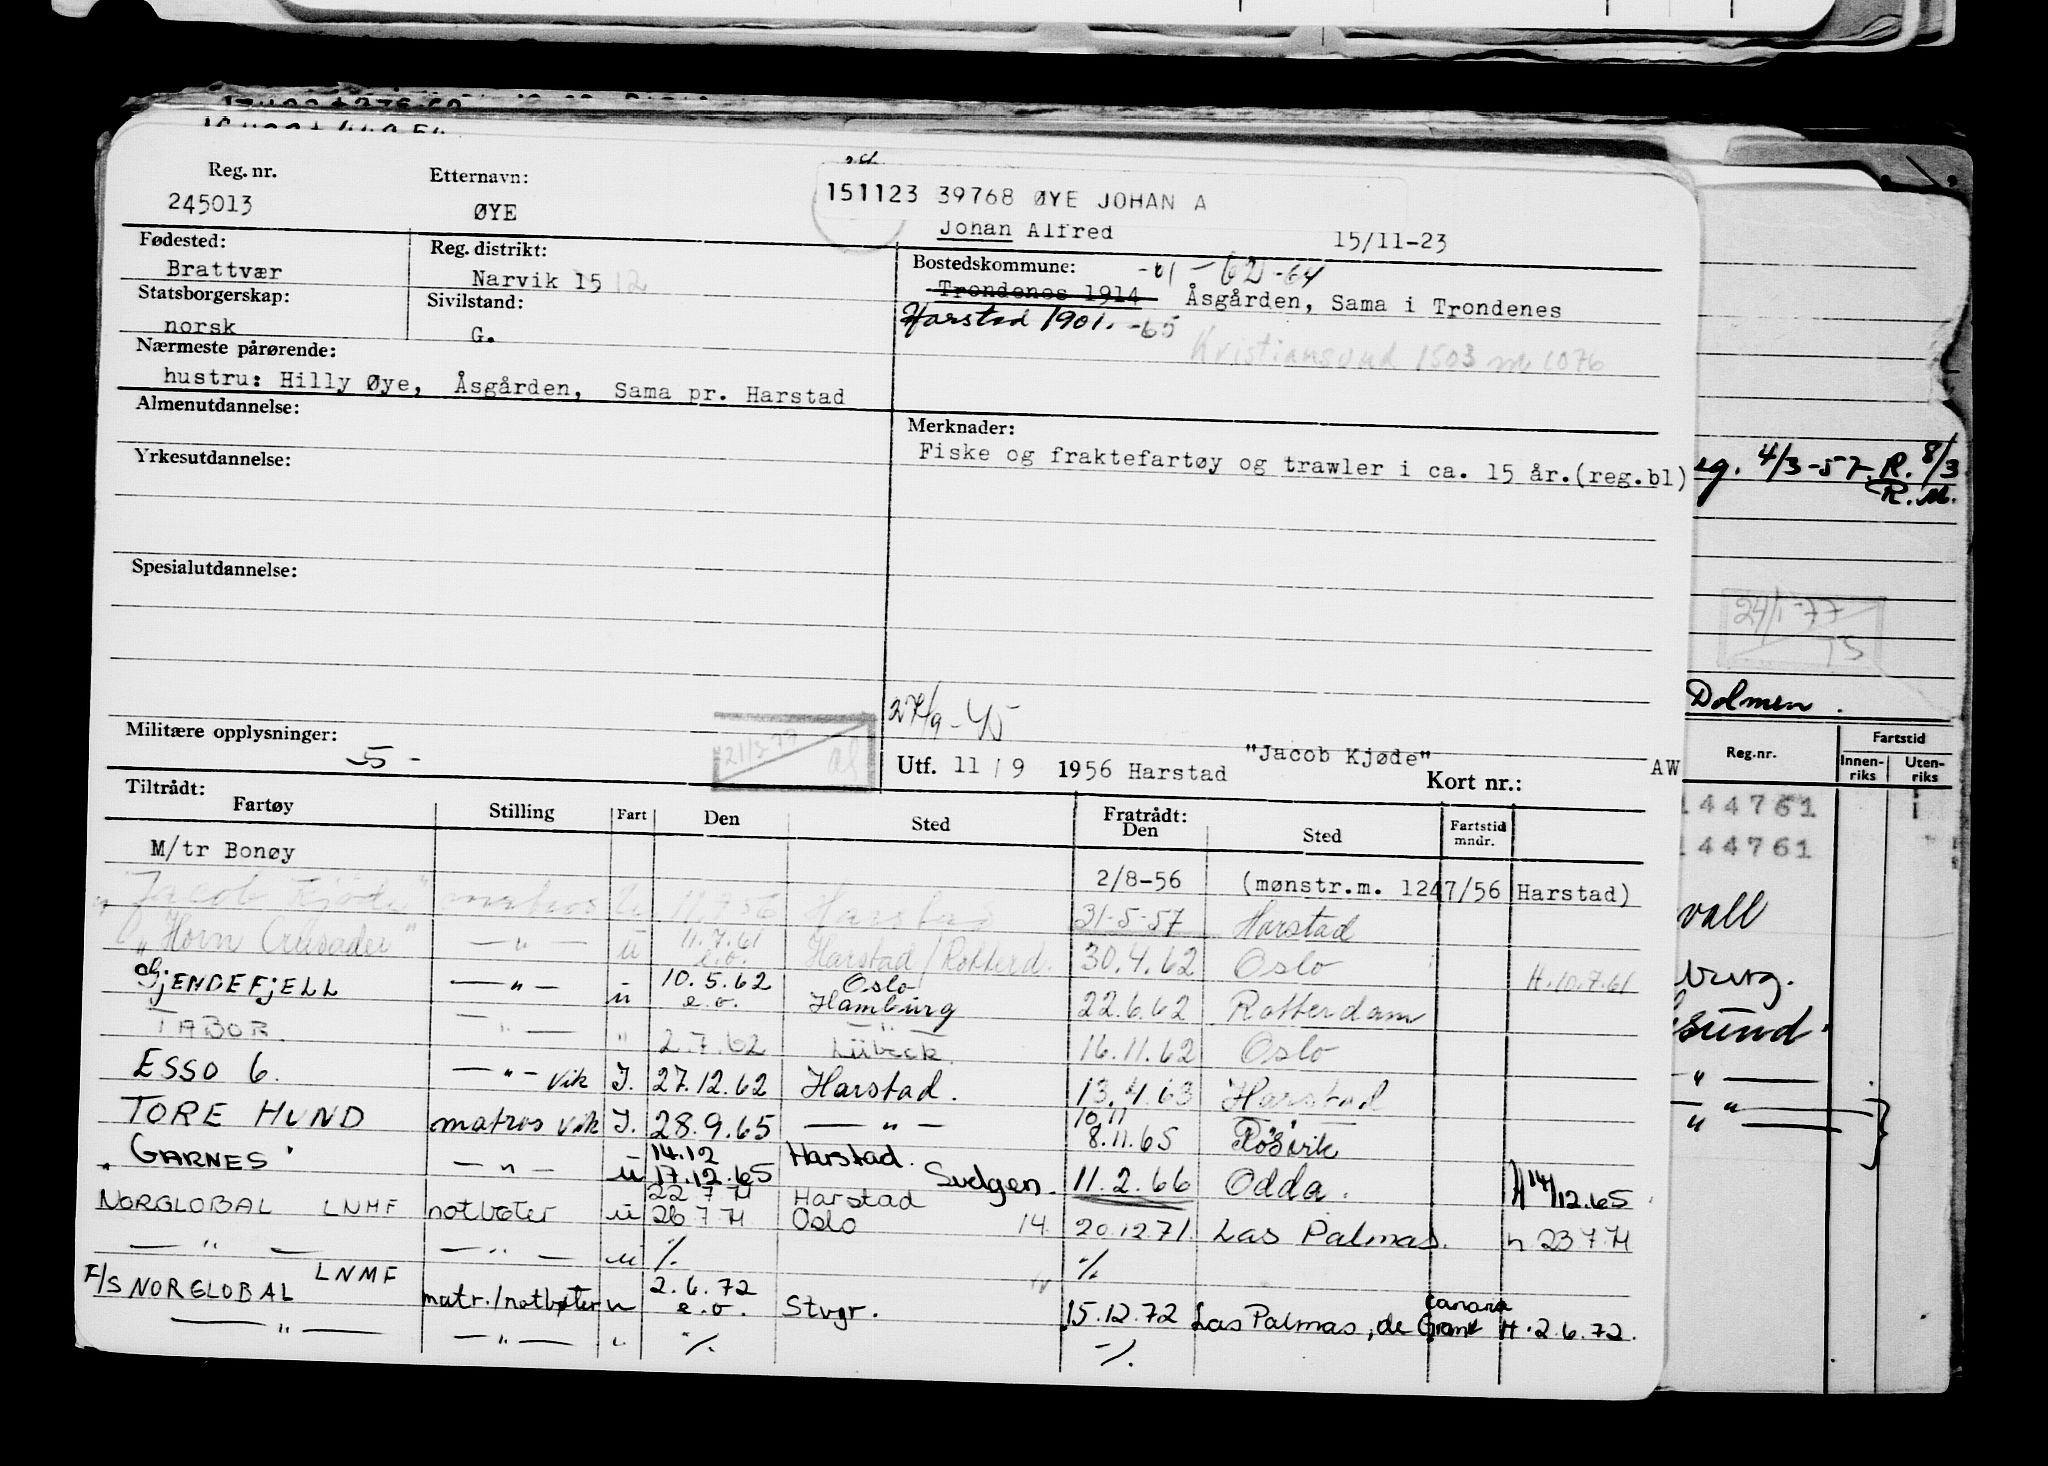 Reg. nr.
245013
Etternavn:
ØYE
151123 39768 ØYE JOHAN A
Johan Alfred 15/11-23
Fødested:
Brattvær
Reg. distrikt:
Narvik 15 12
Bostedskommune: -61 - 62 -64
Trondenes 1914 Åsgården, Sama i Trondenes
Harstad 1901. -65
Kristiansund 1503 m 1076
Statsborgerskap:
norsk
Sivilstand:
G.
Nærmeste pårørende:
hustru: Hilly Øye, Åsgården, Sama pr. Harstad
Almenutdannelse:
Yrkesutdannelse:
Spesialutdannelse:
Merknader:
Fiske og fraktefartøy og trawler i ca. 15 år.(reg.bl)
Militære opplysninger:
-5-
Utf. 11 / 9 1956 Harstad "Jacob Kjøde" Kort nr.: AW
Tiltrådt:
Fartøy Stilling Fart Den Sted Fratrådt: Den Sted Fartstid mndr.
M/tr Bonøy 2/8-56 (mønstr.m. 1247/56 Harstad)
"Jacob Kjøde" matros u 11.9.56 Harstad 31-5-57 Harstad
"Horn Crusader" — " — u 11.7.61 e.o. Harstad/Rotterd. 30.4.62 Oslo H.10.7.61
GJENDEFJELL — " — u 10.5.62 e.o. Oslo Hamburg 22.6.62 Rotterdam
TABOR — " — " 2.7.62 Lübeck. 16.11.62 Oslo
ESSO 6. — " — vik J. 27.12.62 Harstad. 13.4.63 Harstad
TORE HUND matros vik J. 28.9.65 — " — 10.11 8.11.65 Røsvik
"GARNES" — " — u 14.12 17.12.65 Harstad. Svelgen. 11.2.66 Odda. H 14/12.65
NORGLOBAL LNMF notbøter u 22 7 71 26 7 71 Harstad Oslo 14. 20.12.71. Las Palmas. h 23 7 71
— " — — " — u %. %.
F/S NORGLOBAL LNMF matr./notbøter u 2.6.72 e.o. Stvgr. 15.12.72 Las Palmas, de Gran Canaria H.2.6.72.
— " — — " — " %. %.
4/3-57 R. 8/3
R.M.
24/1-77
15
Dolmen.
Reg.nr. Fartstid
Innenriks Utenriks
144761
144761